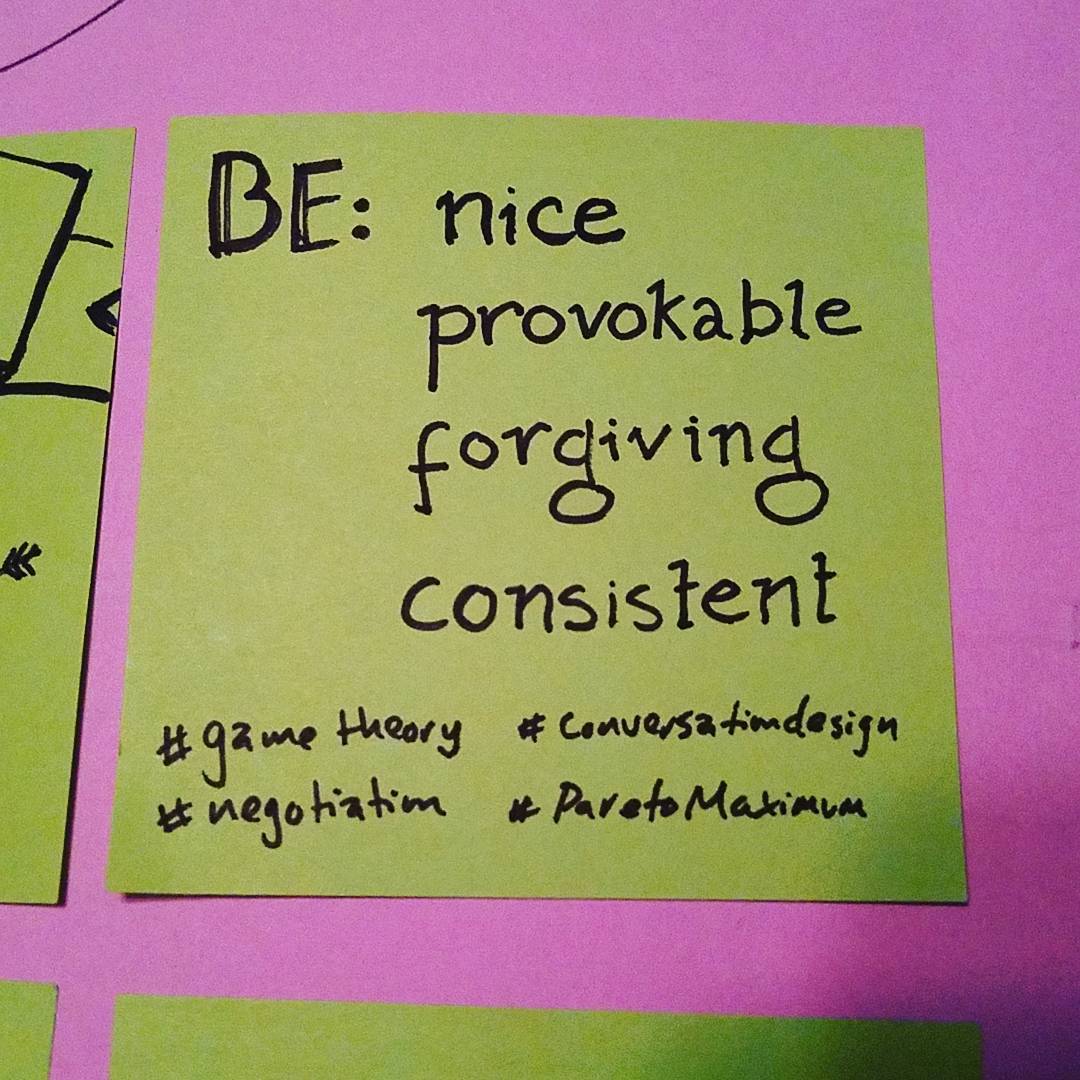 BE: nice
provokable
forgiving
consistent
#game theory #conversationdesign
#negotiation #ParetoMaximum